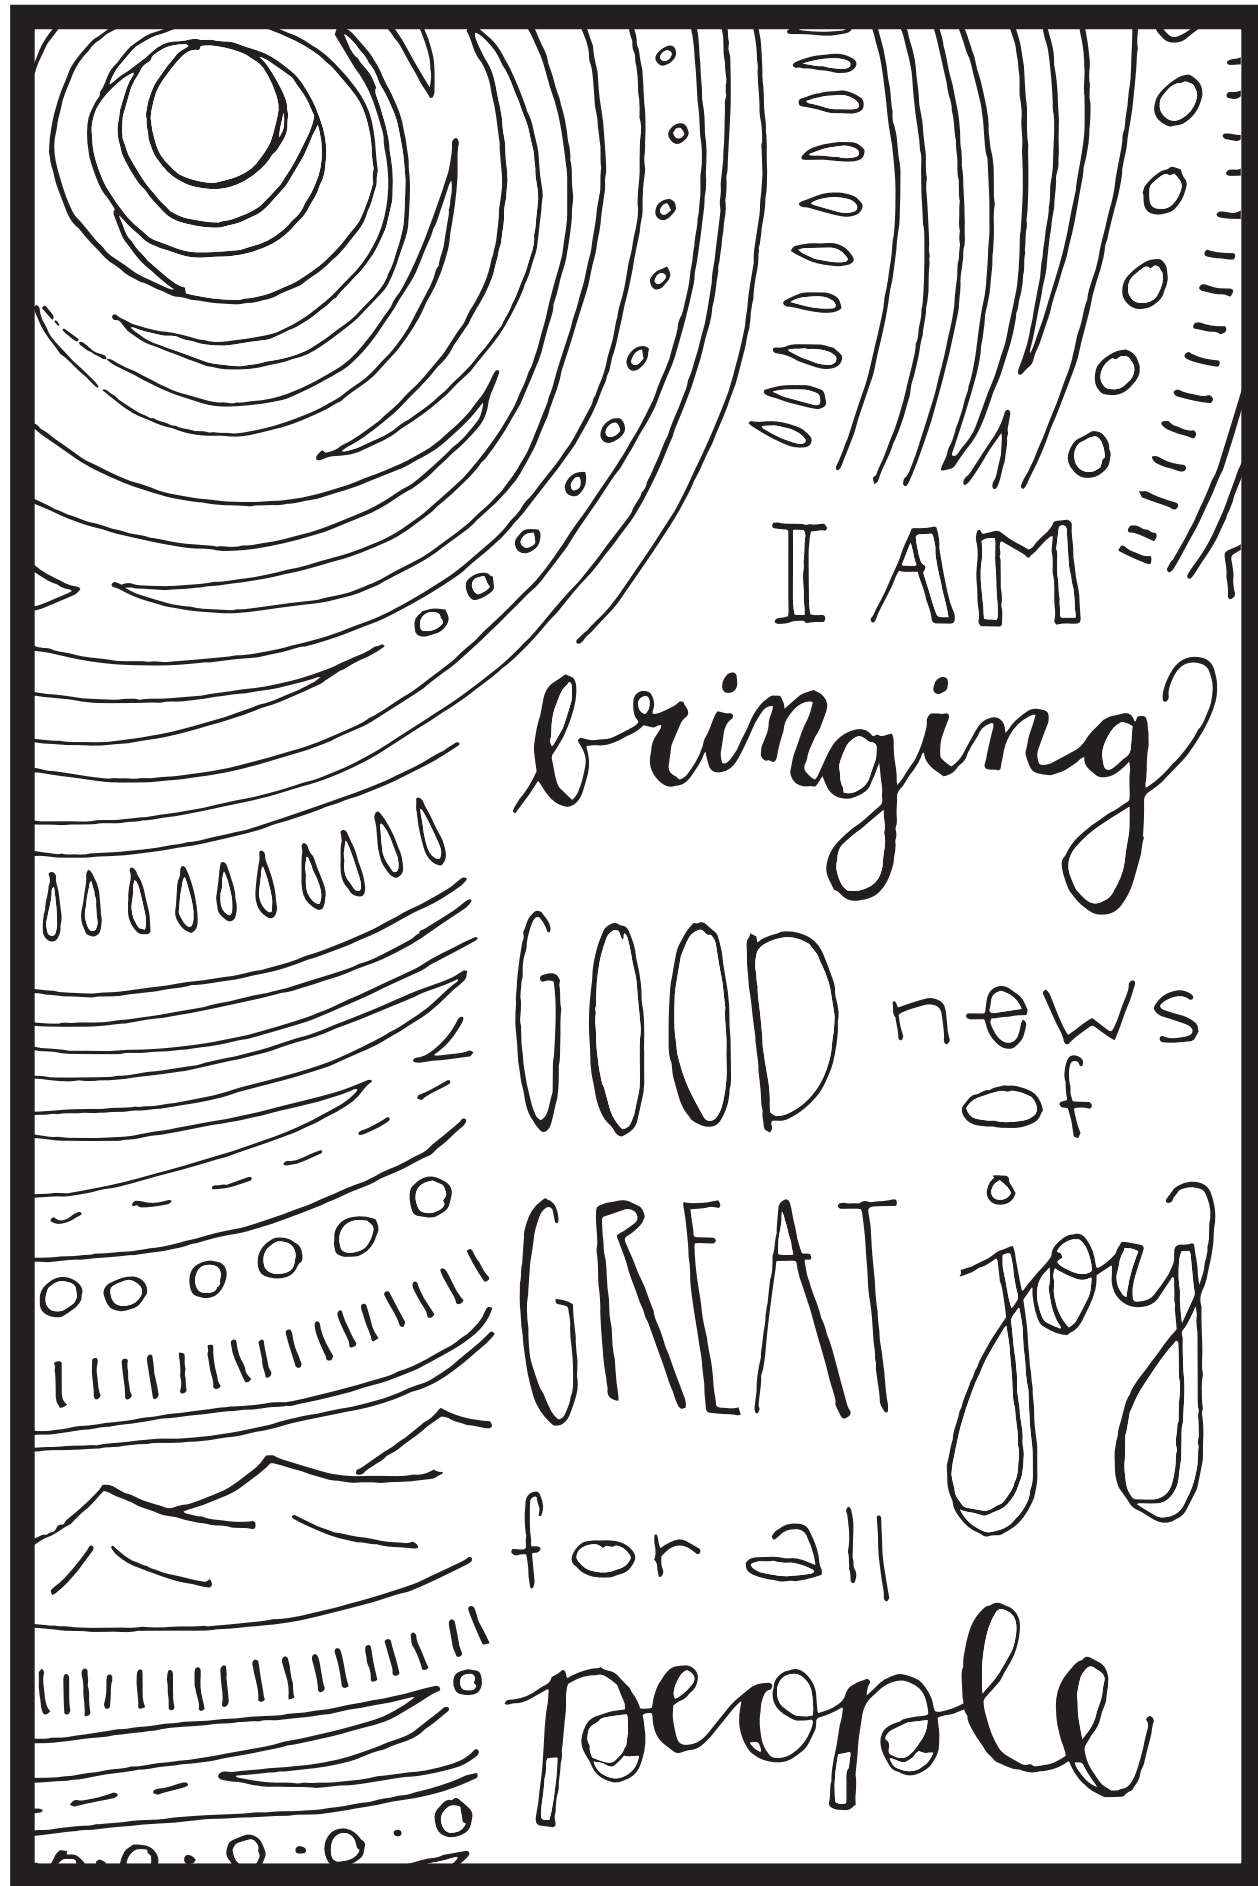 I AM
bringing
GOOD news
of
GREAT joy
for all
people